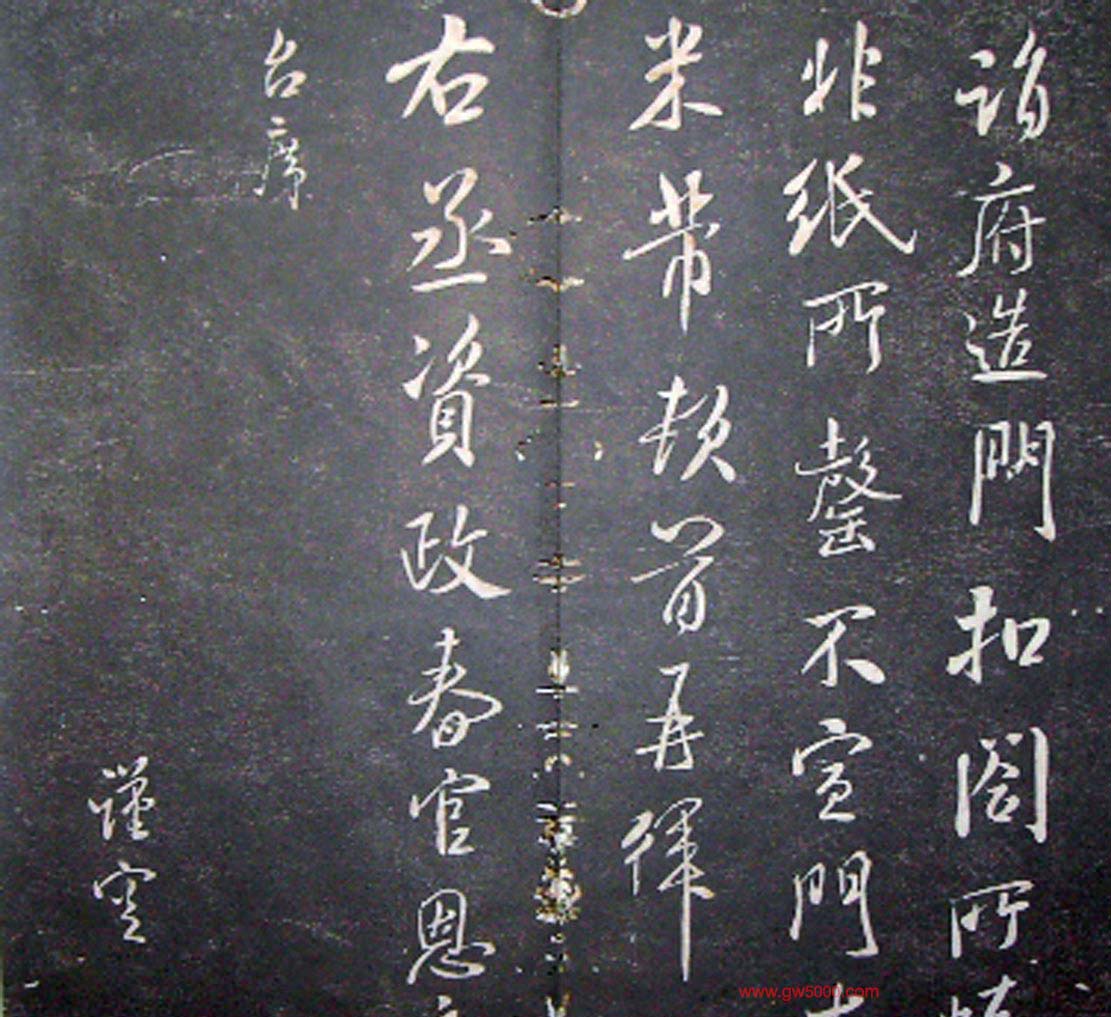 詣府造門扣閤所
非紙所罄不宣門
米芾頓首再拜
右丞資政春官恩
台席
謹空
www.gw5000.com